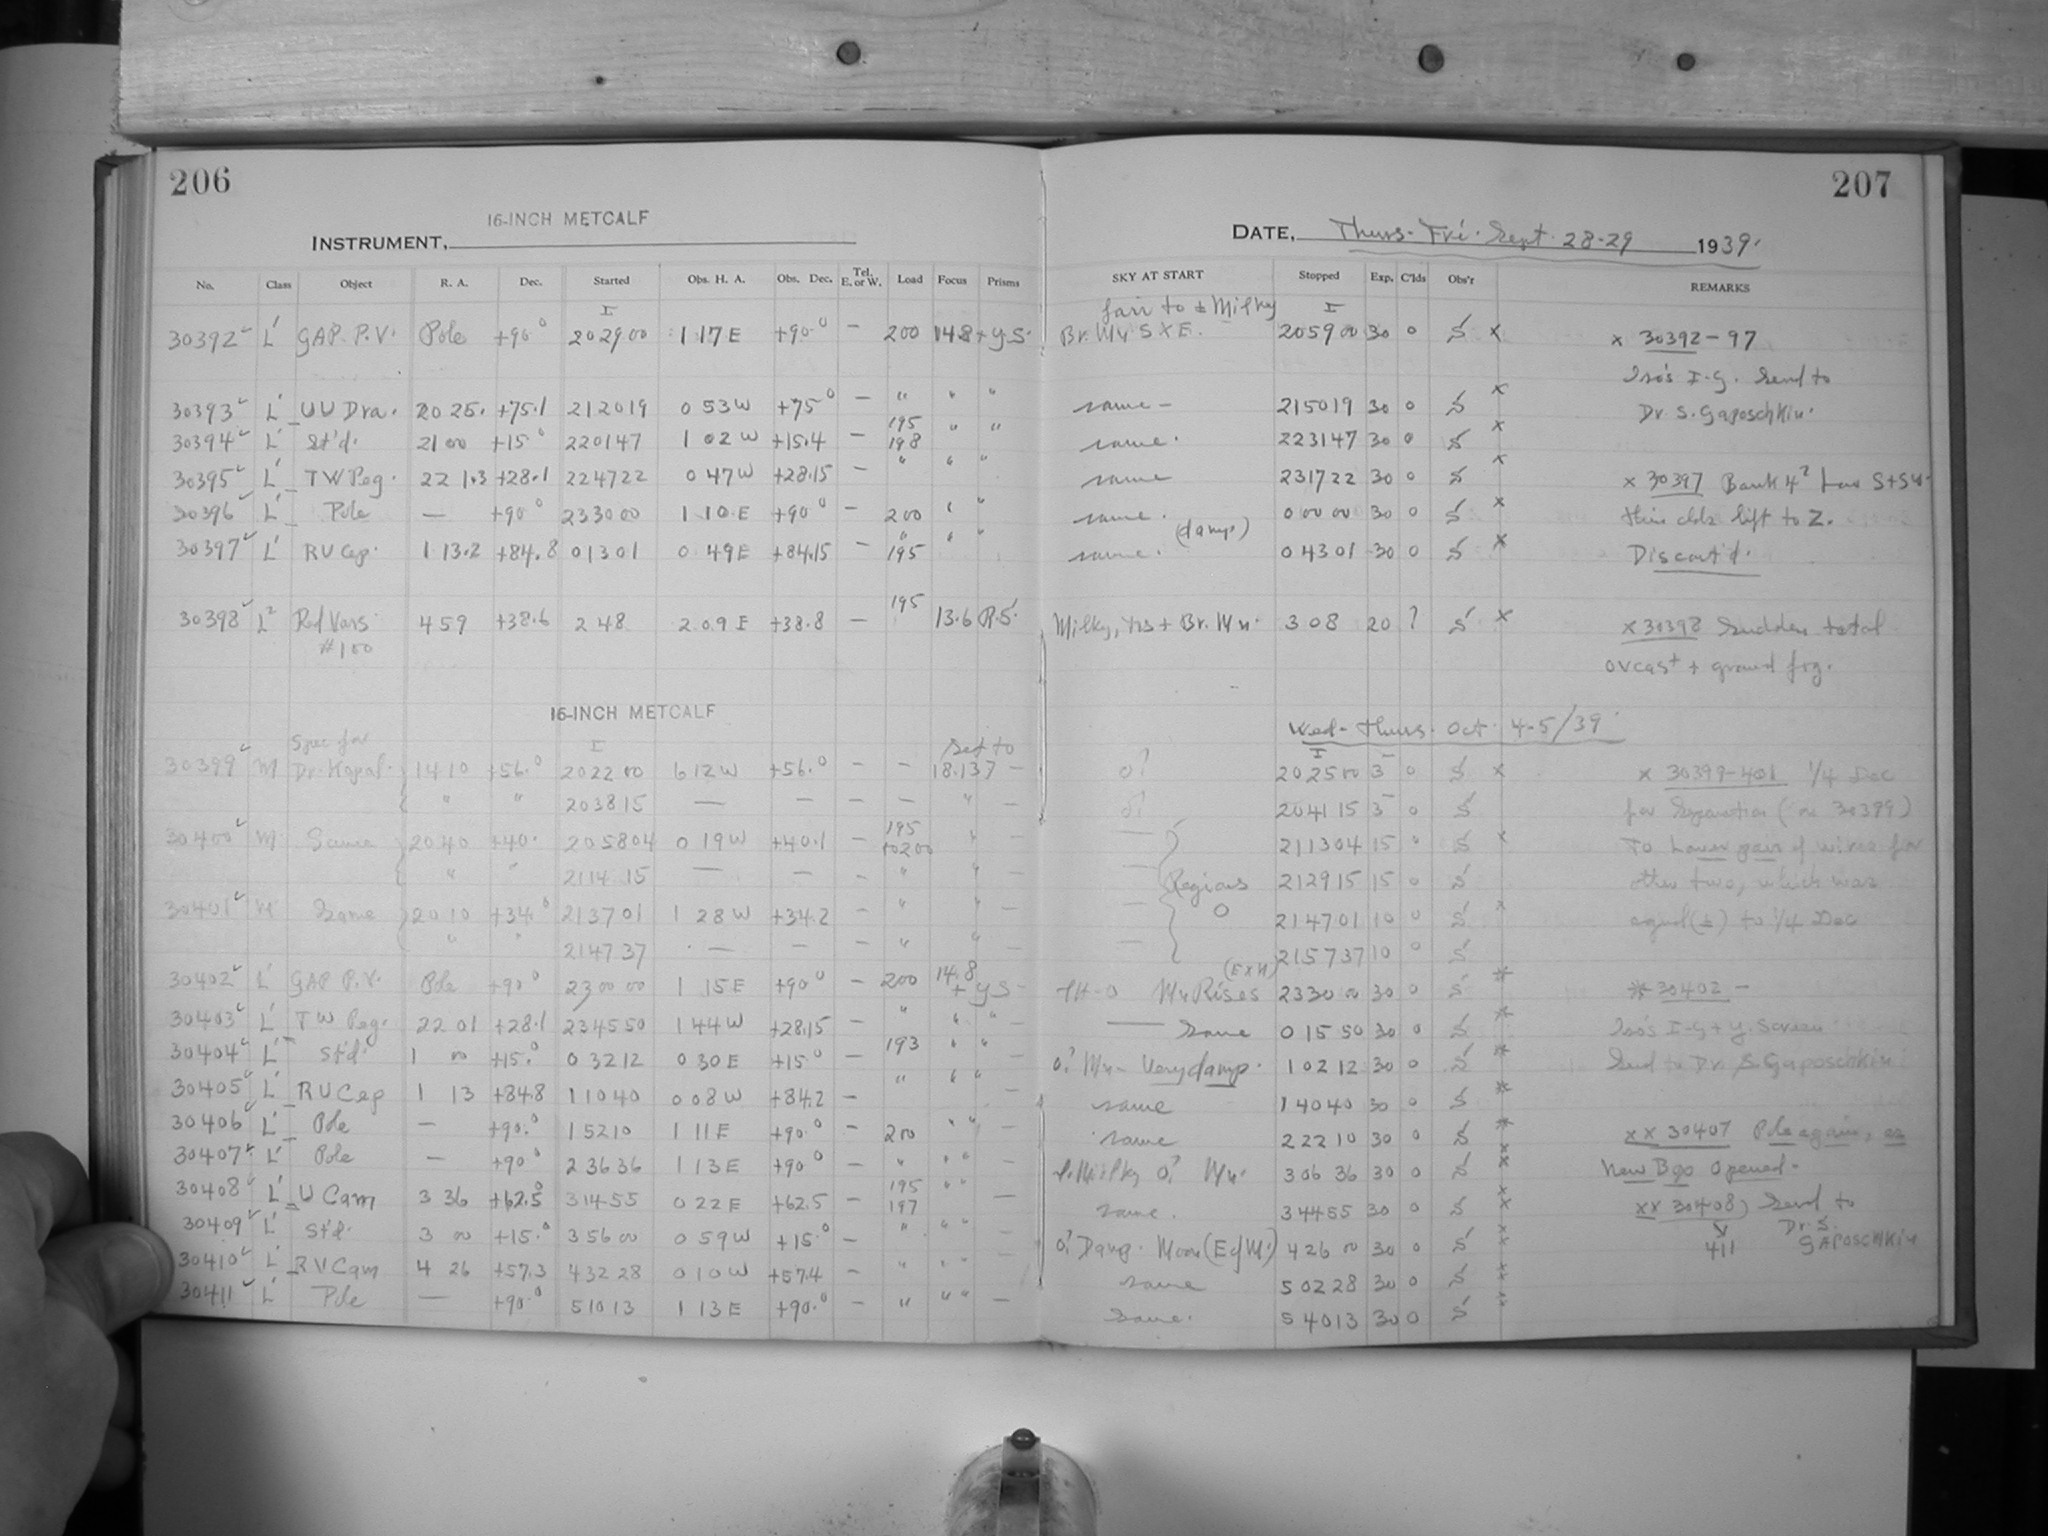 206
207
16-INCH METCALF
INSTRUMENT,
DATE, Thurs. Fri. Sept. 28-29 1939.
No. Class Object R. A. Dec. Started Obs. H. A. Obs. Dec. Tel. E. or W. Load Focus Prisms SKY AT START Stopped Exp. C'lds Obs'r REMARKS
fair to ± Milky
30392 L' GAP. P.V. Pole +90° 202900 1 17 E +90.0 — 200 14.8 + y S. Br. Mn S X E. 205900 30 0 S x x 30392-97
Iso's I-G. Send to
30393 L' UU Dra. 20 25. +75.1 212019 0 53 W +75° — " " " same — 215019 30 0 S x Dr. S. Gaposchkin.
30394 L' St'd. 21 00 +15° 220147 1 02 W +15.4 — 195 198 " " same. 223147 30 0 S x
30395 L' TW Peg. 22 1.3 +28.1 224722 0 47 W +28.15 — " " " same 231722 30 0 S x x 30397 Bank 4² low S+SW.
30396 L' Pole — +90° 233000 1 10 E +90° — 200 " " same. 0 00 00 30 0 S x thin clds lift to Z.
(damp)
30397 L' RU Cep. 1 13.2 +84.8 0 13 01 0 49 E +84.15 — 195 " " same. 0 43 01 30 0 S x Discont'd.
30398 L² Red Vars. 4 59 +38.6 2 48 2 09 E +38.8 — 195 13.6 P.S. Milky, + Br. Mn. 3 08 20 ? S x x 30398 Sudden total
#100 ovcast + ground fog.
16-INCH METCALF
Wed-Thurs. Oct. 4-5/39
Spec for set to
30399 M Dr. Kopal. 14 10 +56.0 202200 6 12 W +56.0 — — 18.137 — 0? 202500 3 0 S x x 30399-401 1/4 Dec
" " 203815 — — — — " — 0? 204115 3 0 S for Separation (on 30399)
30400 M Same 20 40 +40. 205804 0 19 W +40.1 — 195 to 200 " — 211304 15 0 S x To Lower pair of wires for
" " 211415 — — — " " — Regions 212915 15 0 S other two, which was
30401 M Same 20 10 +34.0 213701 1 28 W +34.2 — " " — 0 214701 10 0 S x equal(±) to 1/4 Dec
" " 214737 — — — " " — 215737 10 0 S
(E X N)
30402 L' GAP P.V. Pole +90° 230000 1 15 E +90° — 200 14.8 + y S — Mn Rises 233000 30 0 S * * 30402 —
30403 L' TW Peg. 22 01 +28.1 234550 1 44 W +28.15 — " " " — same 0 15 50 30 0 S * Iso's I-G + Y. Screen
30404 L' St'd. 1 00 +15.0 0 32 12 0 30 E +15.0 — 193 " " 0? Mn — Very damp. 1 02 12 30 0 S * Send to Dr. S. Gaposchkin
30405 L' RU Cep 1 13 +84.8 1 10 40 0 08 W +84.2 — " " " — same 1 40 40 30 0 S *
30406 L' Pole — +90.0 1 52 10 1 11 E +90.0 — 200 " " — same 2 22 10 30 0 S * xx 30407 Pole again, as
30407 L' Pole — +90° 2 36 36 1 13 E +90° — " " " Milky 0? Mn. 3 06 36 30 0 S xx New Box opened.
30408 L' U Cam 3 36 +62.5 3 14 55 0 22 E +62.5 — 195 197 " " — same. 3 44 55 30 0 S xx xx 30408) Send to
30409 L' St'd. 3 00 +15.0 3 56 00 0 59 W +15.0 — " " " 0? Damp. Moon (E of M.) 4 26 00 30 0 S xx 411 Dr. S. GAPOSCHKIN
30410 L' RV Cam 4 26 +57.3 4 32 28 0 10 W +57.4 — " " " — same 5 02 28 30 0 S xx
30411 L' Pole — +90.0 5 10 13 1 13 E +90.0 — " " " — Same. 5 40 13 30 0 S xx